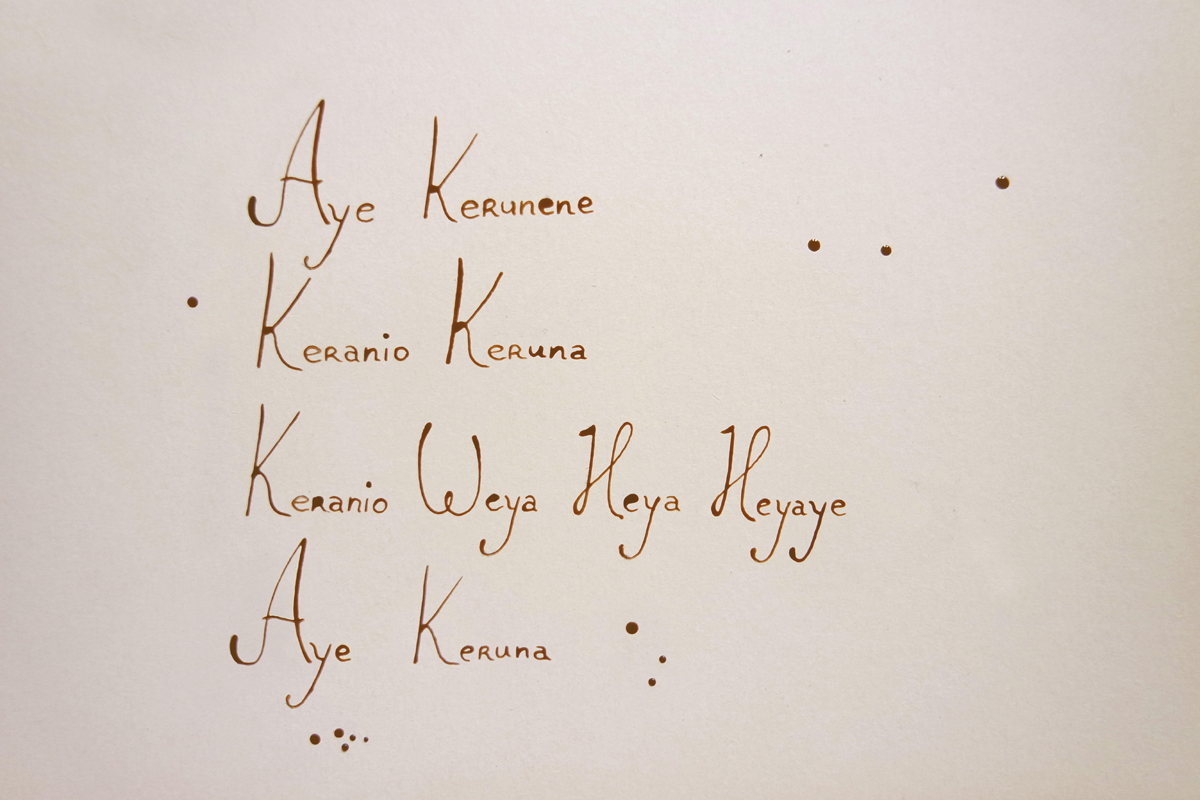 Aye Kerunene
Keranio Keruna
Keranio Weya Heya Heyaye
Aye Keruna